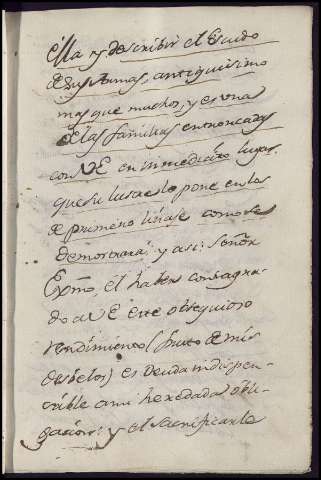 ella y describir el Escudo
de sus Armas, antiquisimo
mas que muchos, y es una
de las familias entroncadas
con VE en inmediato lugar,
que su lustre lo pone en los
de primero linaje como se
demostrará; y asi: Señor
Exmo, el haber consagra-
do a VE este obsequioso
rendimiento (fruto de mis
desvelos) es deuda indispen-
sable a mi heredada obli-
gacion; y el sacrificarle